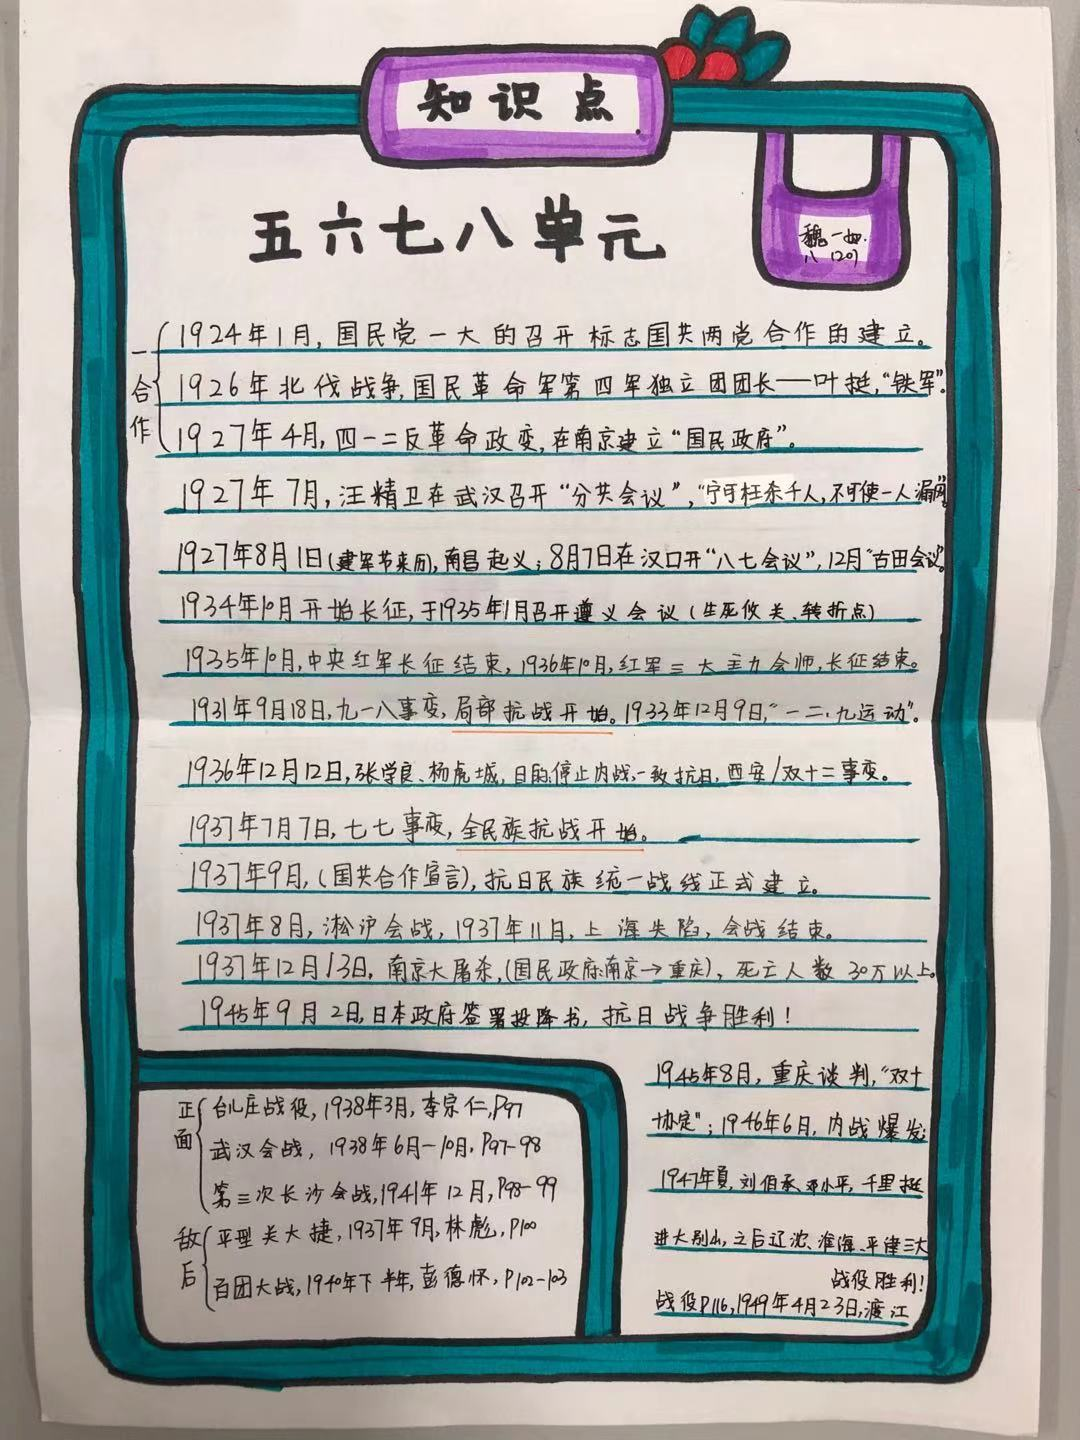 知识点
五六七八单元
魏一如
八(20)
一合作
1924年1月,国民党一大的召开标志国共两党合作的建立。
1926年北伐战争,国民革命军第四军独立团团长——叶挺,“铁军”。
1927年4月,四一二反革命政变,在南京建立“国民政府”。
1927年7月,汪精卫在武汉召开“分共会议”,“宁可枉杀千人,不可使一人漏网”。
1927年8月1日(建军节来历),南昌起义;8月7日在汉口开“八七会议”,12月“古田会议”。
1934年10月开始长征,于1935年1月召开遵义会议(生死攸关、转折点)
1935年10月,中央红军长征结束,1936年10月,红军三大主力会师,长征结束。
1931年9月18日,九一八事变,局部抗战开始。1933年12月9日,“一二·九运动”。
1936年12月12日,张学良、杨虎城,目的:停止内战,一致抗日,西安/双十二事变。
1937年7月7日,七七事变,全民族抗战开始。
1937年9月,(国共合作宣言),抗日民族统一战线正式建立。
1937年8月,淞沪会战,1937年11月,上海失陷,会战结束。
1937年12月13日,南京大屠杀,(国民政府:南京→重庆),死亡人数30万以上。
1945年9月2日,日本政府签署投降书,抗日战争胜利!
正面
台儿庄战役,1938年3月,李宗仁,P97
武汉会战,1938年6月-10月,P97-98
第三次长沙会战,1941年12月,P98-99
敌后
平型关大捷,1937年9月,林彪,P100
百团大战,1940年下半年,彭德怀,P102-103
1945年8月,重庆谈判,“双十
协定”;1946年6月,内战爆发;
1947年夏,刘伯承、邓小平,千里挺
进大别山,之后辽沈、淮海、平津三大
战役P116,1949年4月23日,渡江
战役胜利!